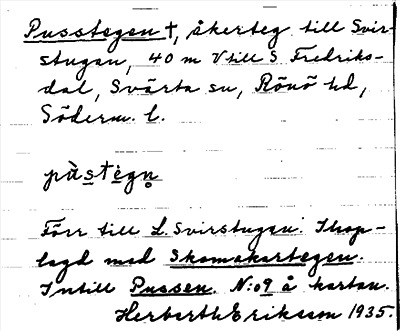 Pusstegen †, åkerteg till Svir-
stugan, 40 m V till S Fredriks-
dal, Svärta sn, Rönö hd,
Söderm. l.
pùstègn̥
Förr till L. Svirstugan. Ihop-
lagd med Skomakartegen.
Intill Pussen. N:o 9 å kartan.
Herberth Eriksson 1935.